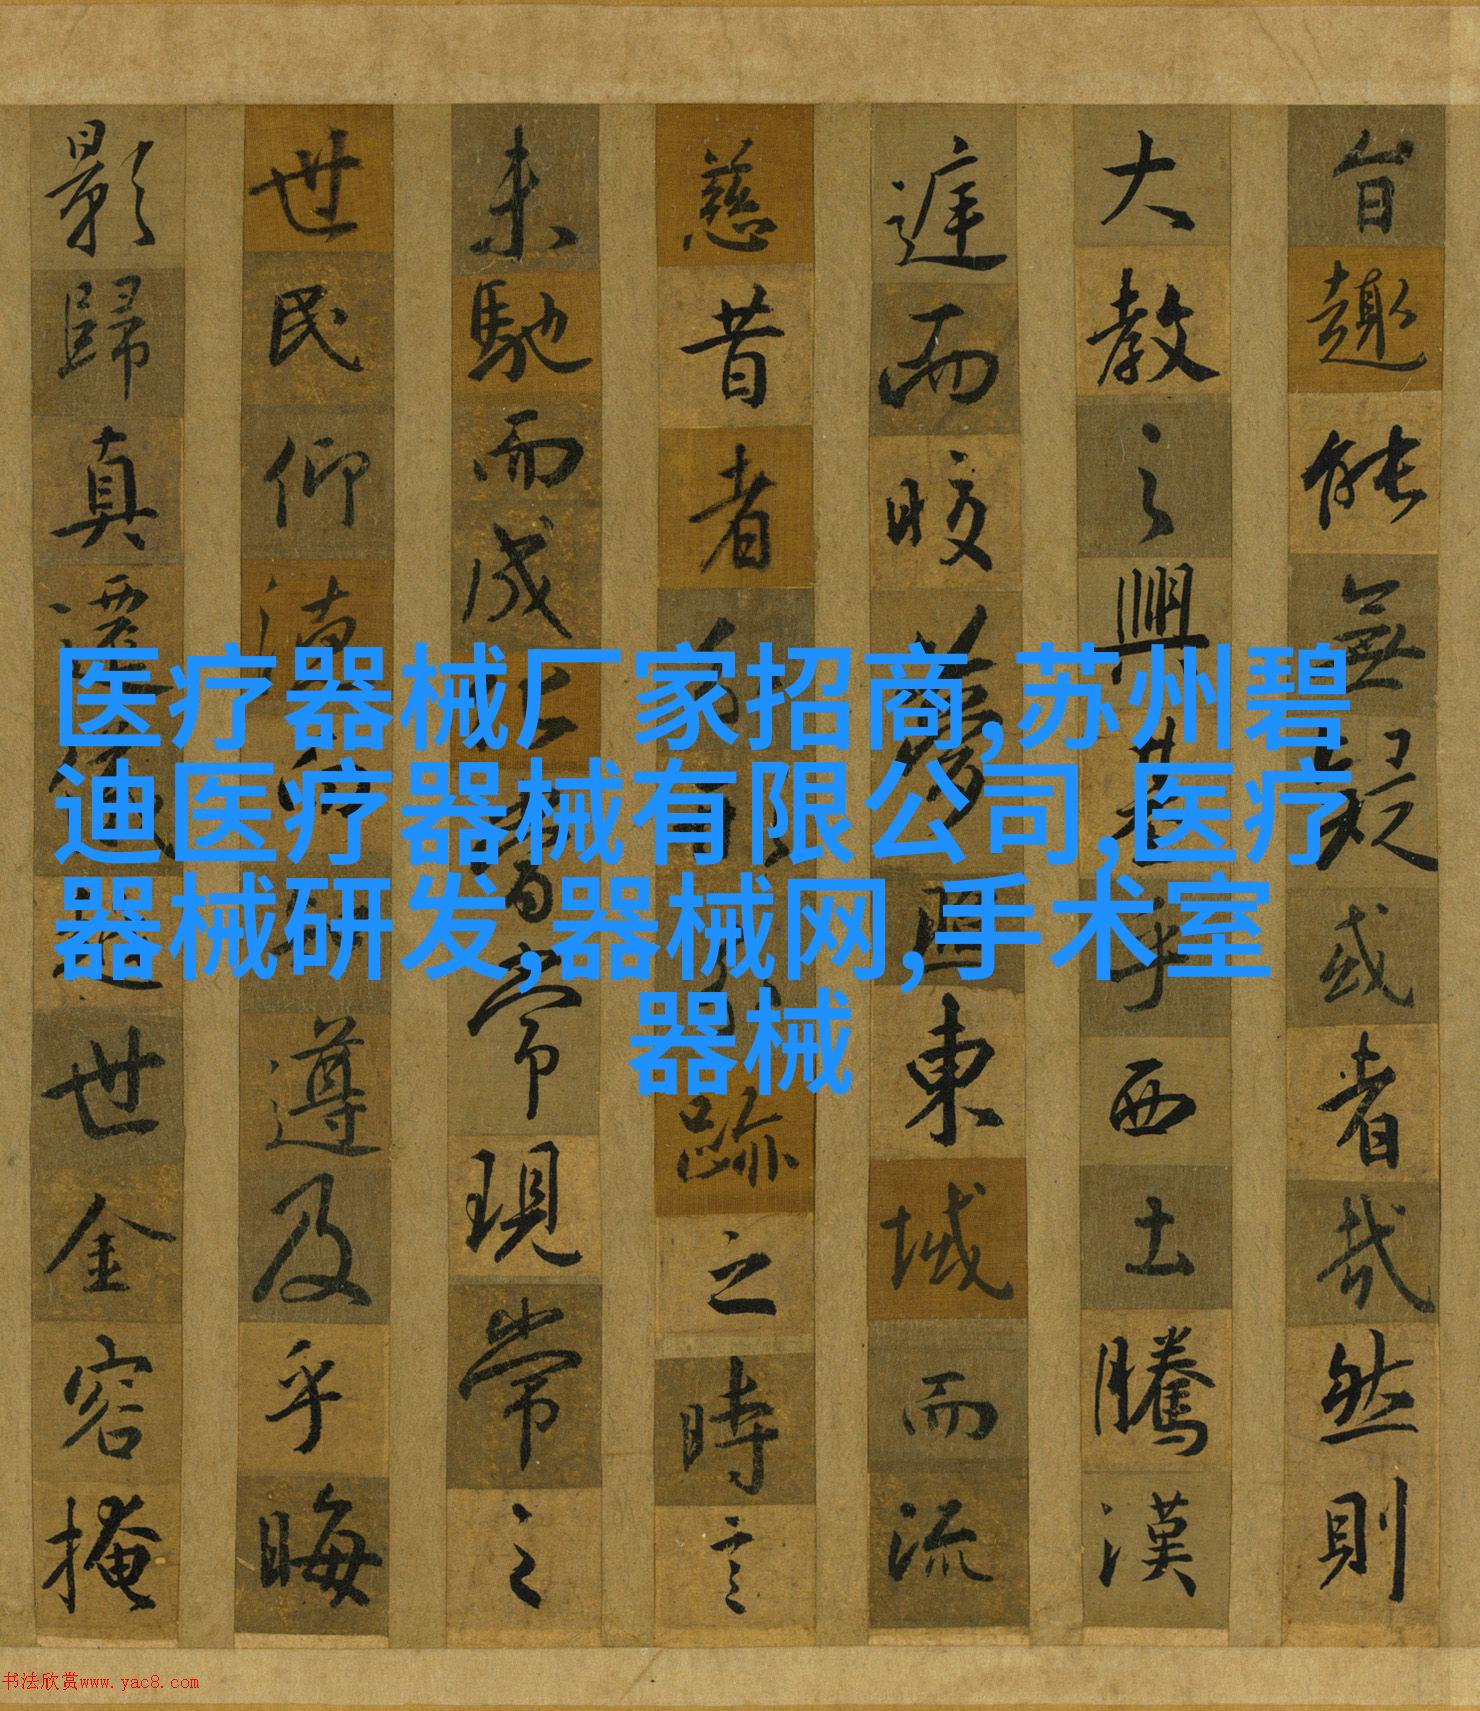 医疗器械厂家招商,苏州碧
迪医疗器械有限公司,医疗
器械研发,器械网,手术室
器械
旨趣能無疑或者哉然則
大教之興基乎西土騰漢
庭而皎夢照東域而流
慈昔者分形分跡之時言
未馳而成化當常現常之
世民仰德而知遵及乎晦
影歸真遷儀越世金容掩
书法欣赏www.yac8.com